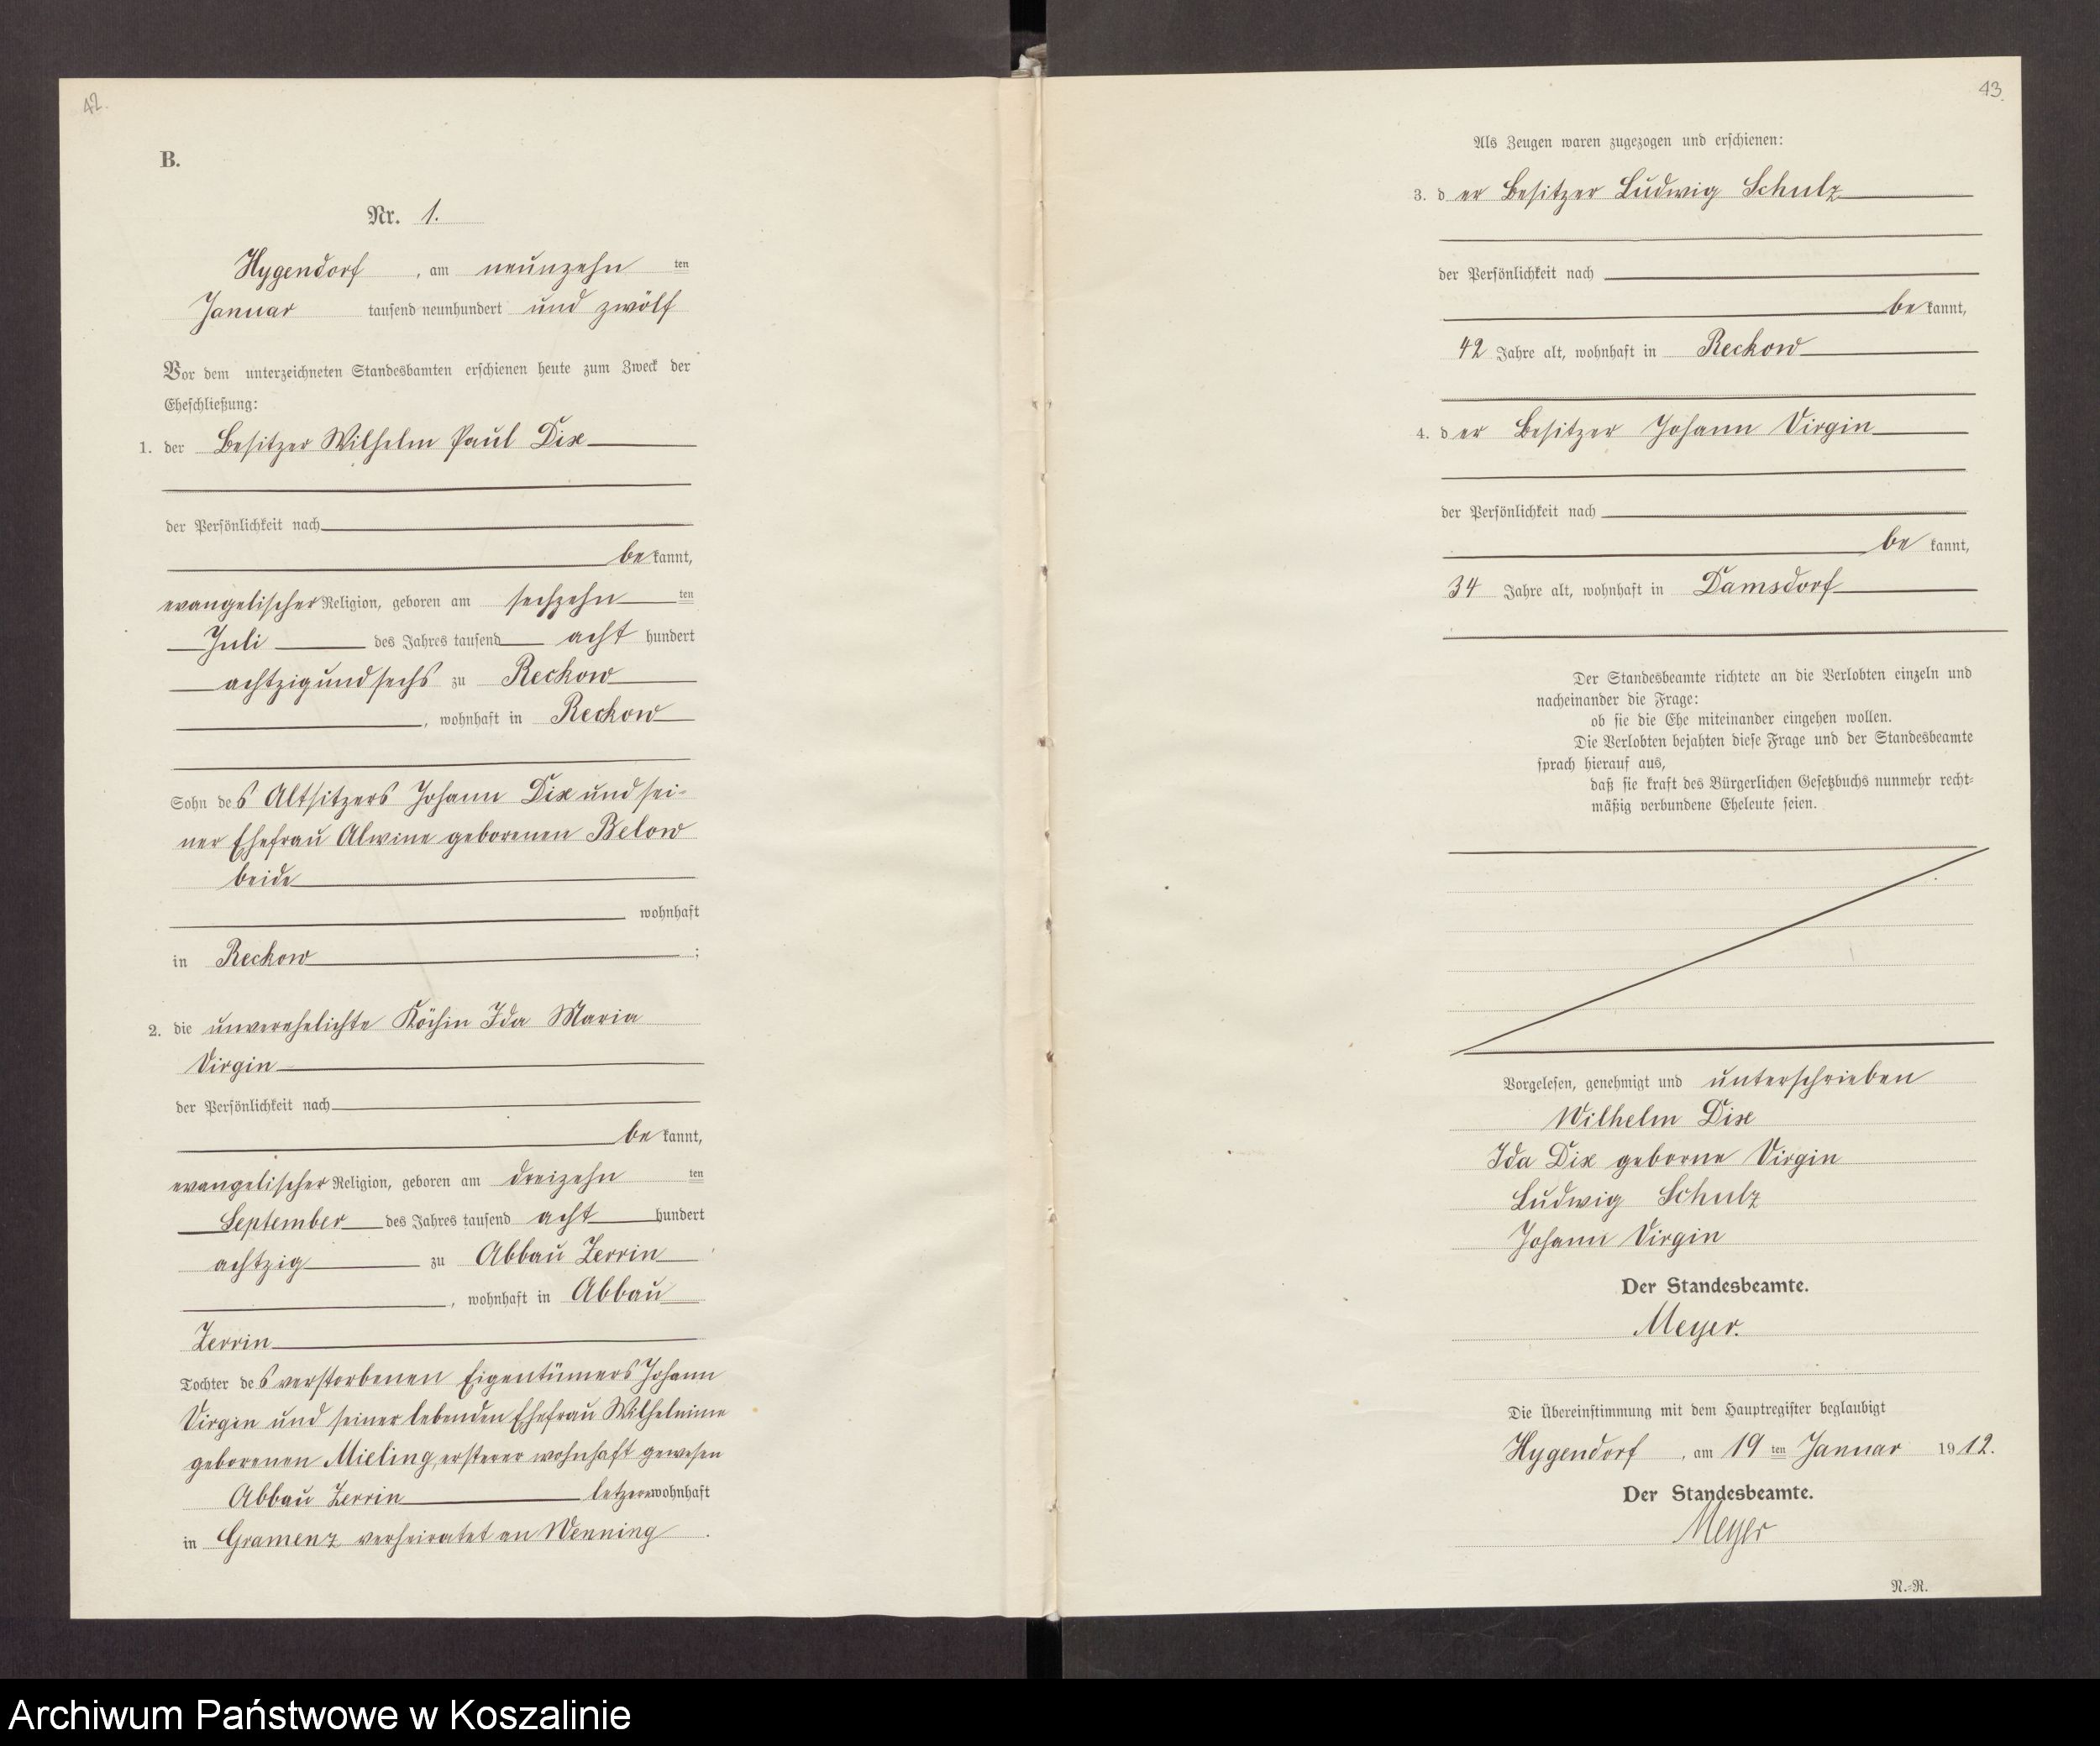 42.
B.
Nr. 1.
Hygendorf, am neunzehn ten
Januar tausend neunhundert und zwölf
Vor dem unterzeichneten Standesbamten erschienen heute zum Zweck der
Eheschließung:
1. der Besitzer Wilhelm Paul Dix
der Persönlichkeit nach
bekannt,
evangelischer Religion, geboren am sechzehn ten
Juli des Jahres tausend acht hundert
achtzig und sechs zu Reckow
, wohnhaft in Reckow
Sohn des Altsitzers Johann Dix und sei-
ner Ehefrau Alwine geborenen Below
beide
wohnhaft
in Reckow ;
2. die unverehelichte Köchin Ida Maria
Virgin
der Persönlichkeit nach
bekannt,
evangelischer Religion, geboren am dreizehn ten
September des Jahres tausend acht hundert
achtzig zu Abbau Zerrin
, wohnhaft in Abbau
Zerrin
Tochter des verstorbenen Eigentümers Johann
Virgin und seiner lebenden Ehefrau Wilhelmine
geborenen Mieling, ersterer wohnhaft gewesen
Abbau Zerrin letzere wohnhaft
in Gramenz verheiratet an Wenning .
43.
Als Zeugen waren zugezogen und erschienen:
3. der Besitzer Ludwig Schulz
der Persönlichkeit nach
bekannt,
42 Jahre alt, wohnhaft in Reckow
4. der Besitzer Johann Virgin
der Persönlichkeit nach
bekannt,
34 Jahre alt, wohnhaft in Damsdorf
Der Standesbeamte richtete an die Verlobten einzeln und
nacheinander die Frage:
ob sie die Ehe miteinander eingehen wollen.
Die Verlobten bejahten diese Frage und der Standesbeamte
sprach hierauf aus,
daß sie kraft des Bürgerlichen Gesetzbuchs nunmehr recht-
mäßig verbundene Eheleute seien.
Vorgelesen, genehmigt und unterschrieben
Wilhelm Dix
Ida Dix geborne Virgin
Ludwig Schulz
Johann Virgin
Der Standesbeamte.
Meyer.
Die Übereinstimmung mit dem Hauptregister beglaubigt
Hygendorf, am 19 ten Januar 1912.
Der Standesbeamte.
Meyer
N.-R.
Archiwum Państwowe w Koszalinie